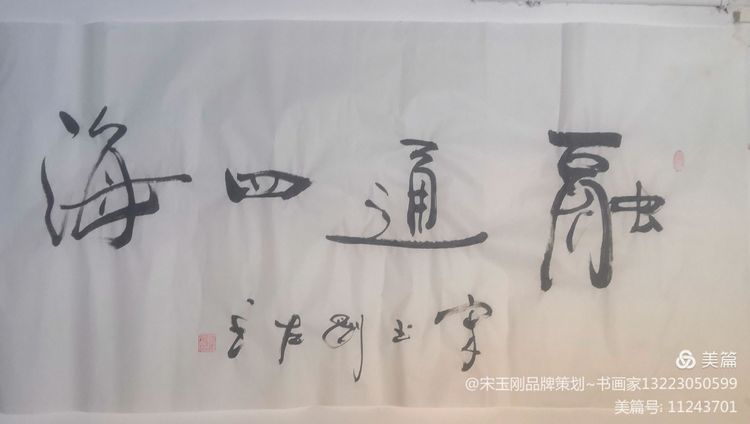 融通四海
宋玉刚左书
美篇
@宋玉刚品牌策划~书画家13223050599
美篇号: 11243701